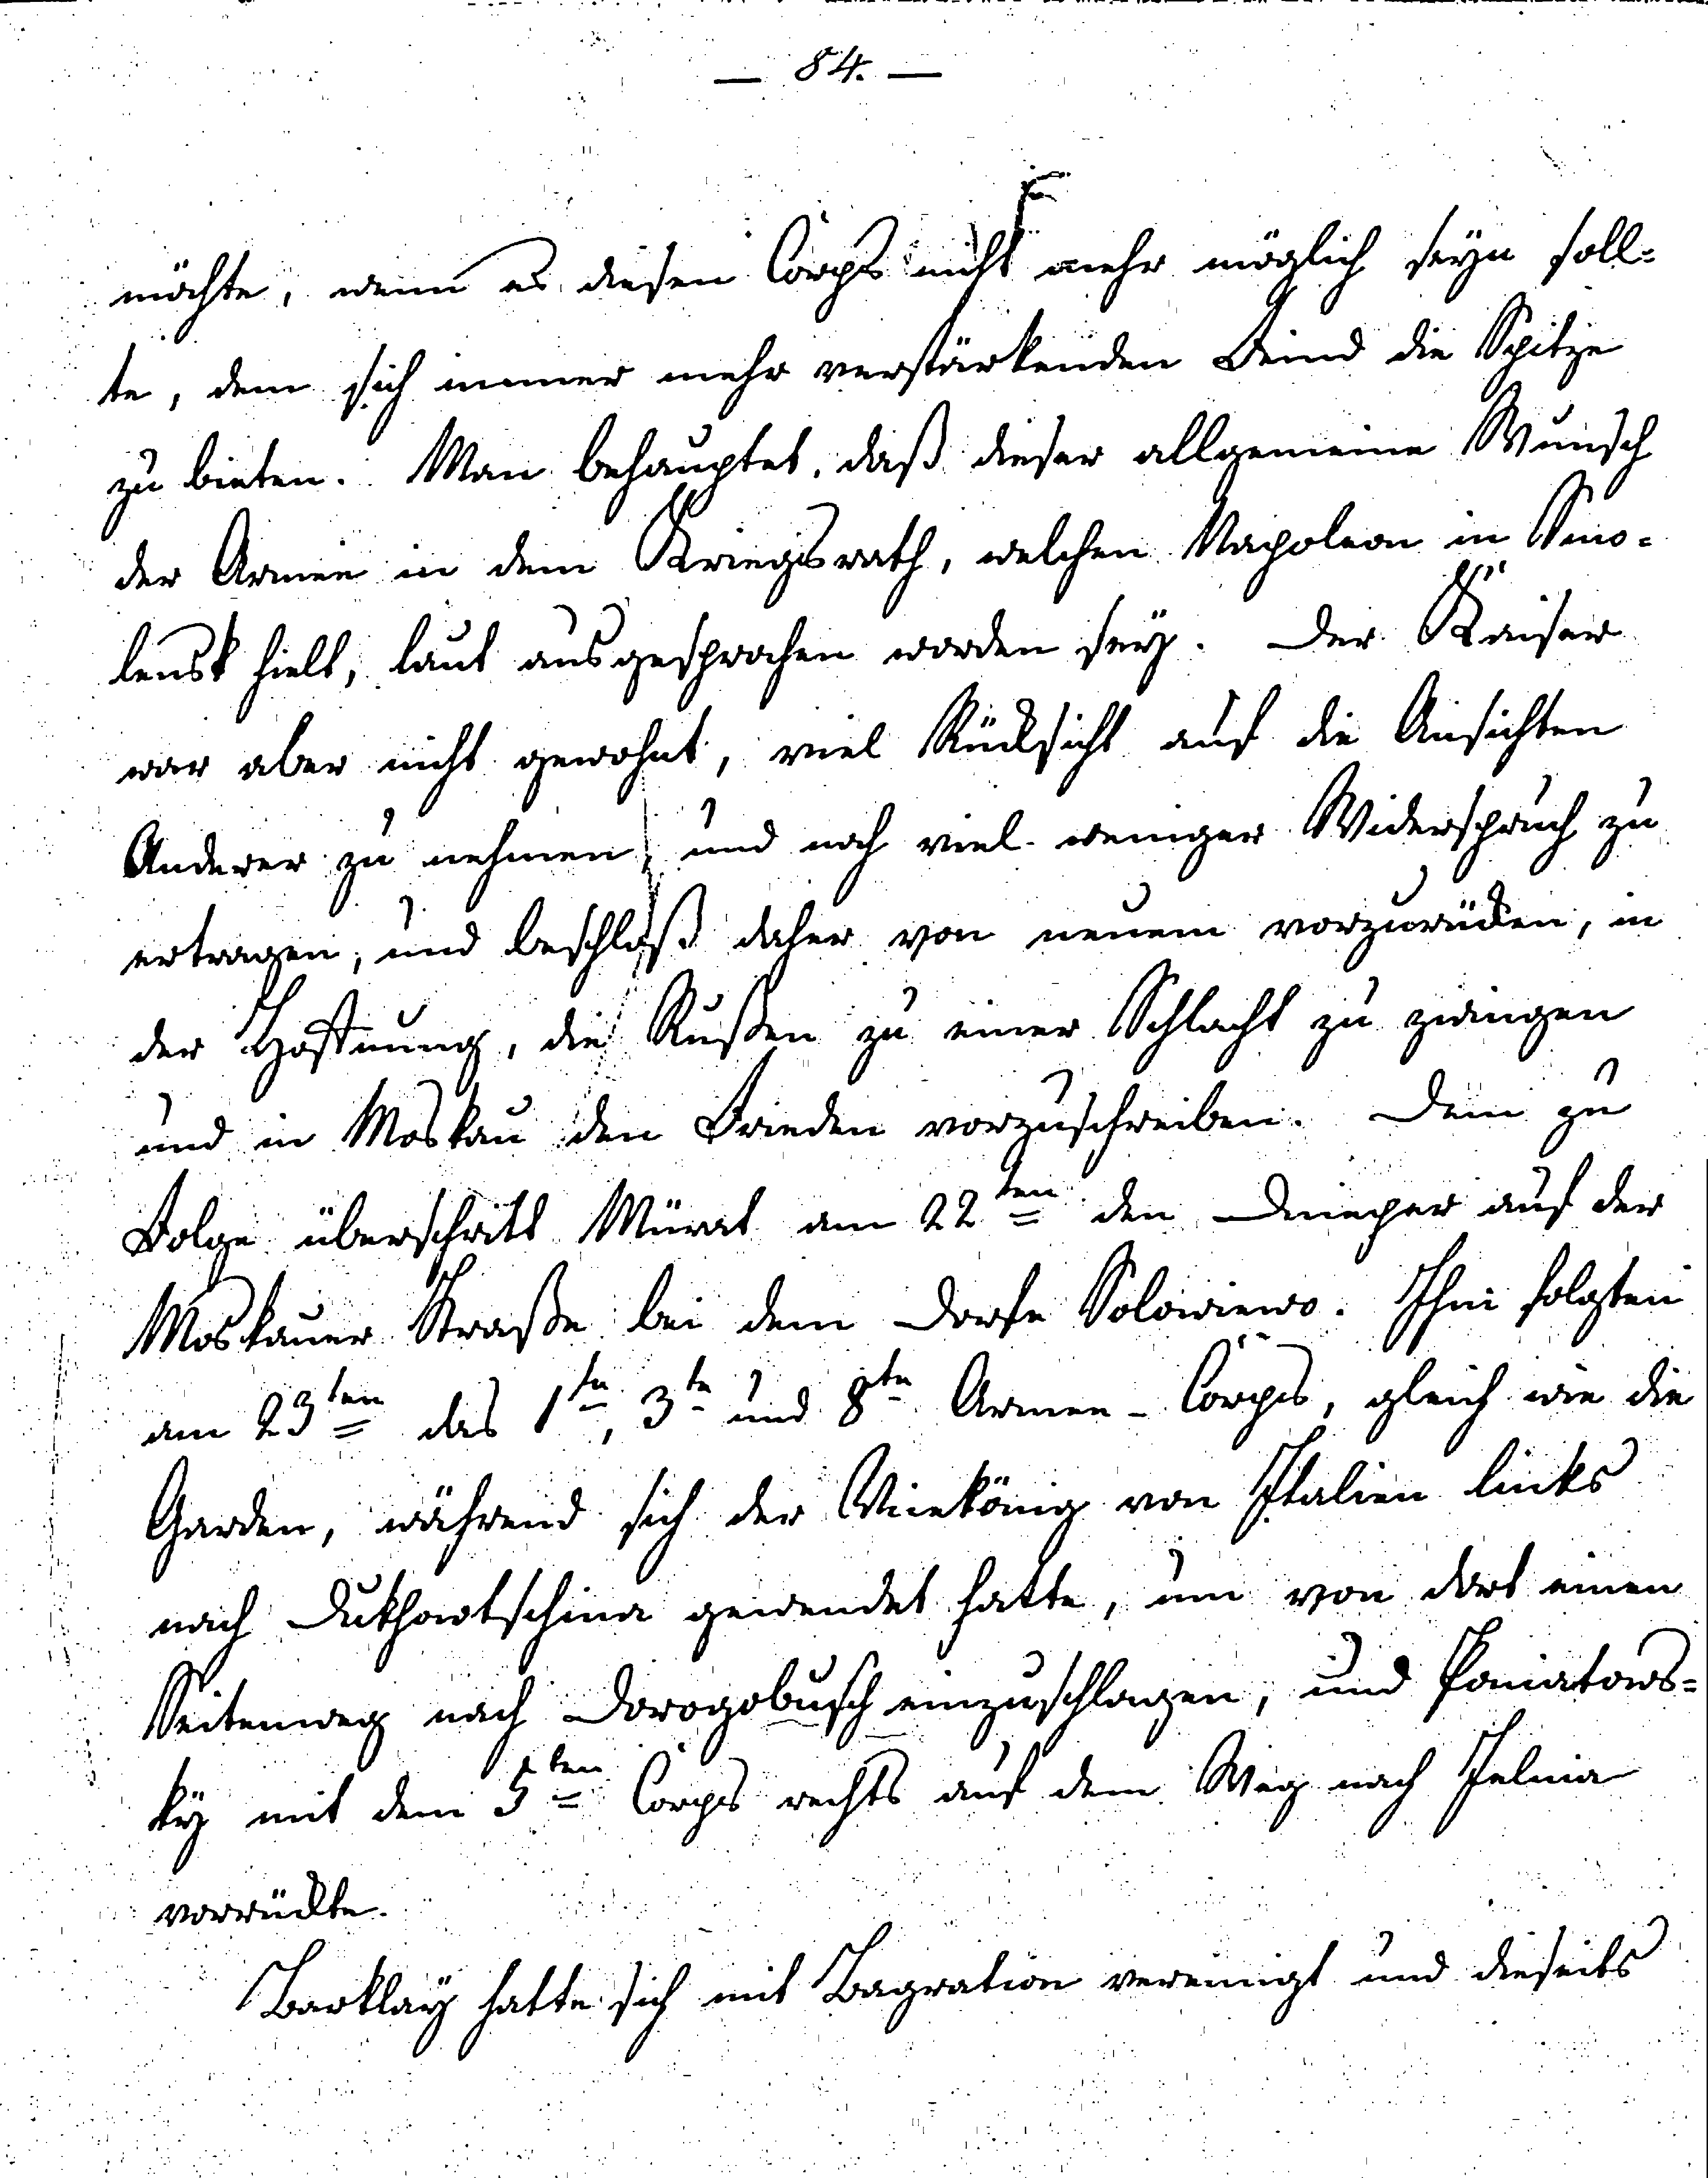 — 84. —
möchte, wenn es diesen Corps nicht mehr möglich seyn soll-
te, dem sich immer mehr verstärkenden Feind die Spitze
zu bieten. Man behauptet, daß dieser allgemeine Wunsch
der Armee in dem Kriegsrath, welchen Napoleon in Smo-
lensk hielt, laut ausgesprochen worden sey. Der Kaiser
war aber nicht gewohnt, viel Rücksicht auf die Ansichten
Anderer zu nehmen, und noch viel weniger Widerspruch zu
ertragen, und beschloß daher von neuem vorzurücken, in
der Hoffnung, die Rußen zu einer Schlacht zu zwingen
und in Moskau den Frieden vorzuschreiben. Dem zu
Folge überschritt Mürat am 22ten den Dnieper auf der
Moskauer Straße bei dem Dorfe Solowiewo. Ihm folgten
am 23ten das 1te, 3te und 8te Armee-Corps, gleich wie die
Garden, während sich der Vicekönig von Italien links
nach Dukhowtschina gewendet hatte, um von dort einen
Seitenweg nach Dorogobusch einzuschlagen, und Poniatows-
ky mit dem 5ten Corps rechts auf dem Weg nach Jelnia
vorrückte.
Barklay hatte sich mit Bagration vereinigt und dieseits